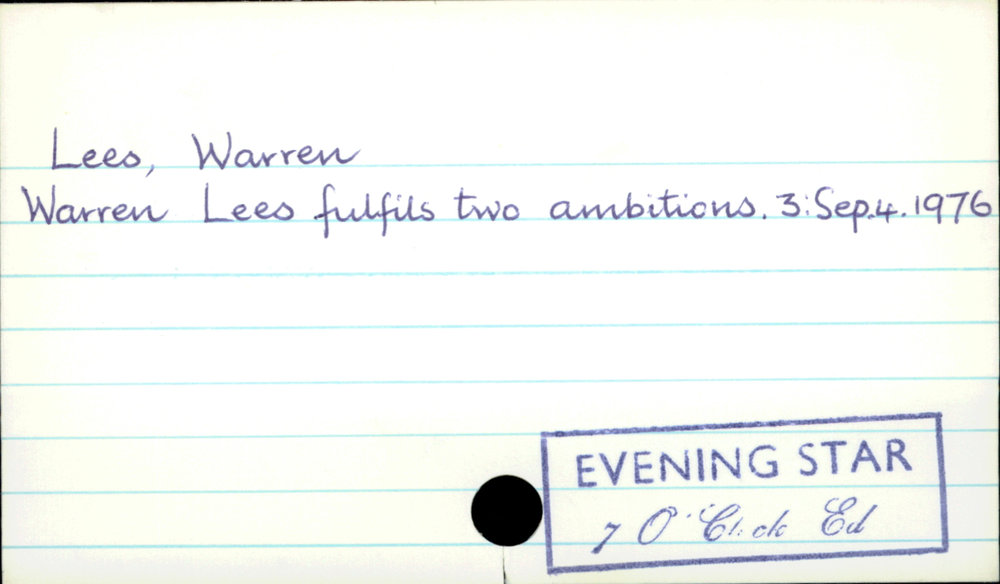 Lees, Warren
Warren Lees fulfils two ambitions. 3:Sep.4.1976
EVENING STAR
7 O'Clock Ed